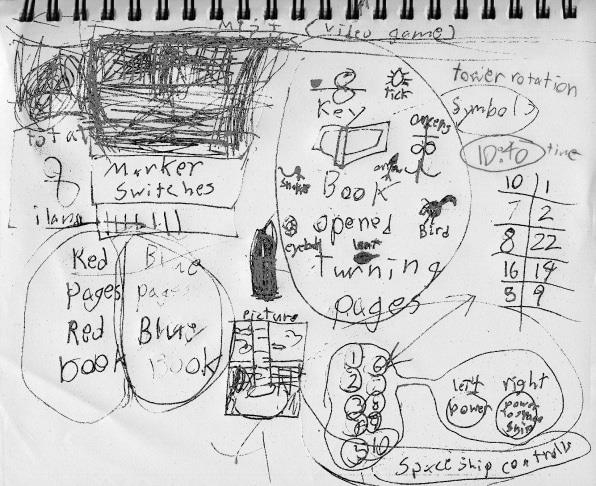 Myst (video game)
tower rotation
Symbols
10:40 time
10 1
7 2
8 22
16 14
5 9
Key
tick
Marker
Switches
Book
opened
turning
pages
snake
arrow
Bird
eyeball
leaf
Red
pages
Red
book
Blue
pages
Blue
Book
picture
1 6
2
3 8
9
5 10
left right
power power
to space
ship
Space ship controlls